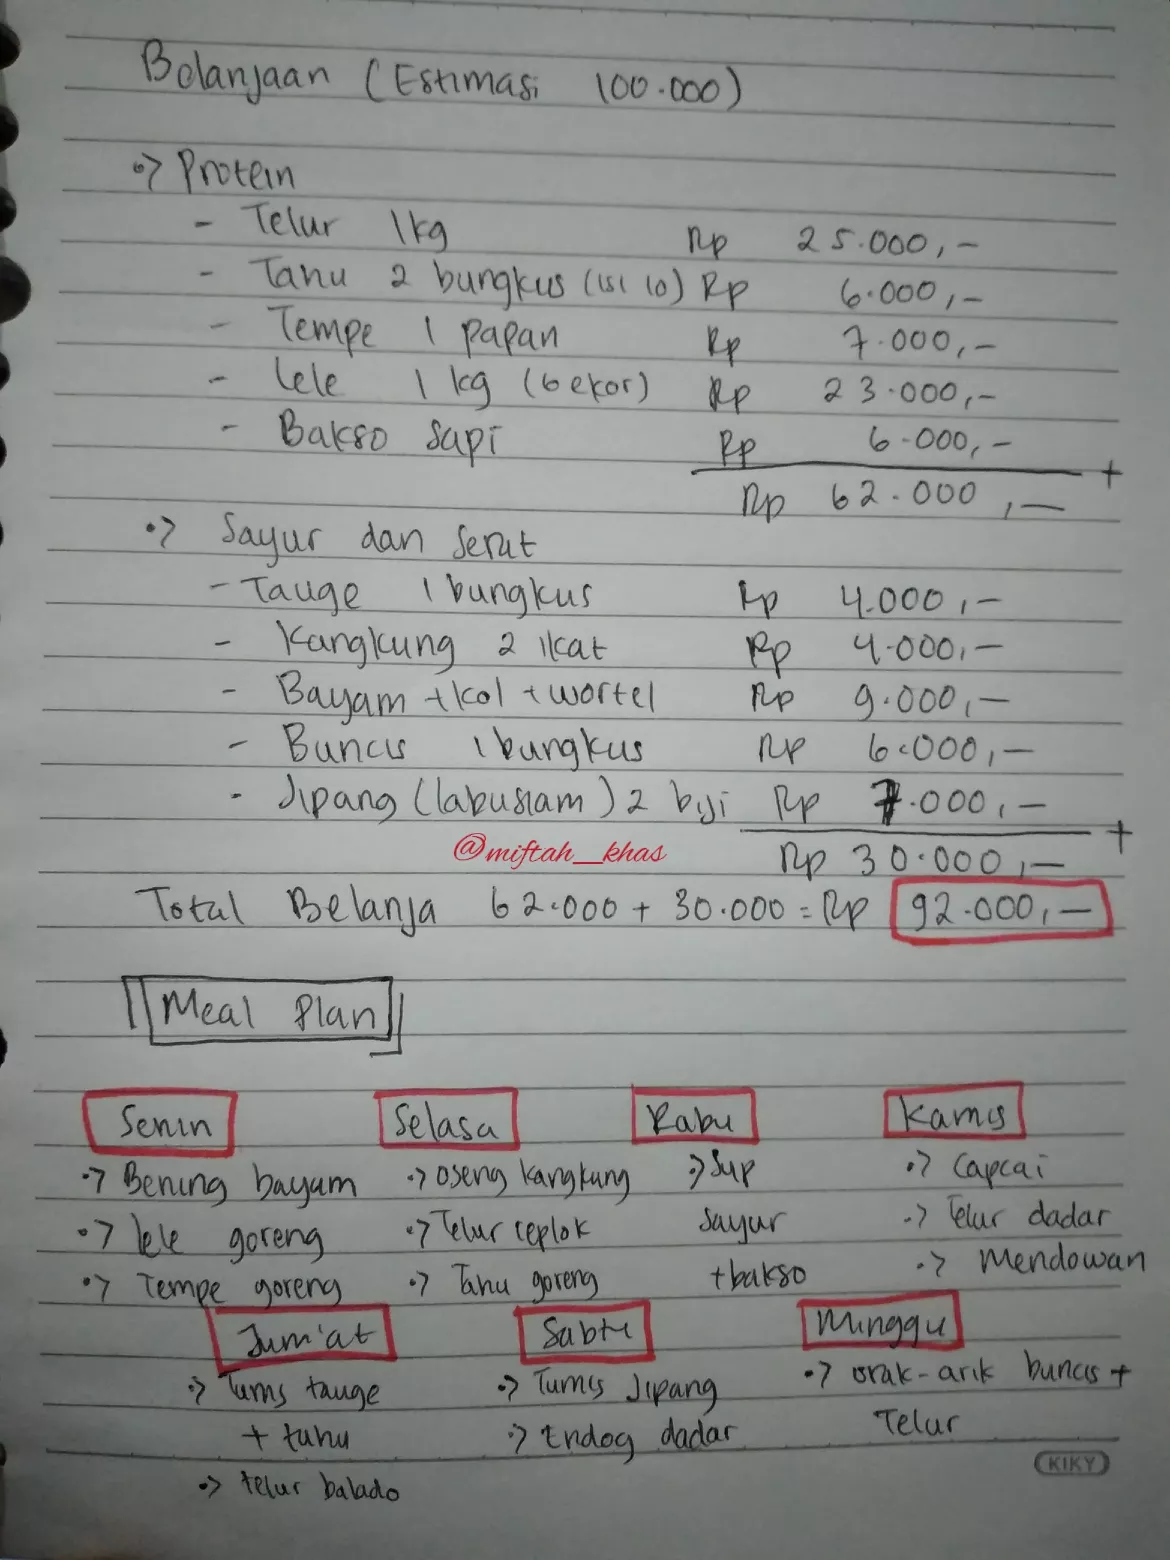 Belanjaan (Estimasi 100.000)
•> Protein
- Telur 1kg Rp 25.000,-
- Tahu 2 bungkus (isi 10) Rp 6.000,-
- Tempe 1 papan Rp 7.000,-
- Lele 1 kg (6 ekor) Rp 23.000,-
- Bakso sapi Rp 6.000,-
+
Rp 62.000,-
•> Sayur dan Serat
- Tauge 1 bungkus Rp 4.000,-
- Kangkung 2 ikat Rp 4.000,-
- Bayam +kol +wortel Rp 9.000,-
- Buncis 1 bungkus Rp 6.000,-
- Jipang (labusiam) 2 biji Rp 7.000,-
+
@miftah_khas Rp 30.000,-
Total Belanja 62.000 + 30.000 = Rp 92.000,-
Meal Plan
Senin
•> Bening bayam
•> lele goreng
•> Tempe goreng
Selasa
•> Oseng kangkung
•> Telur ceplok
•> Tahu goreng
Rabu
•> Sup
Sayur
+bakso
Kamis
•> Capcai
•> Telur dadar
•> Mendowan
Jum'at
•> Tumis tauge
+ tahu
•> telur balado
Sabtu
•> Tumis Jipang
•> Endog dadar
Minggu
•> orak-arik buncis +
Telur
KIKY